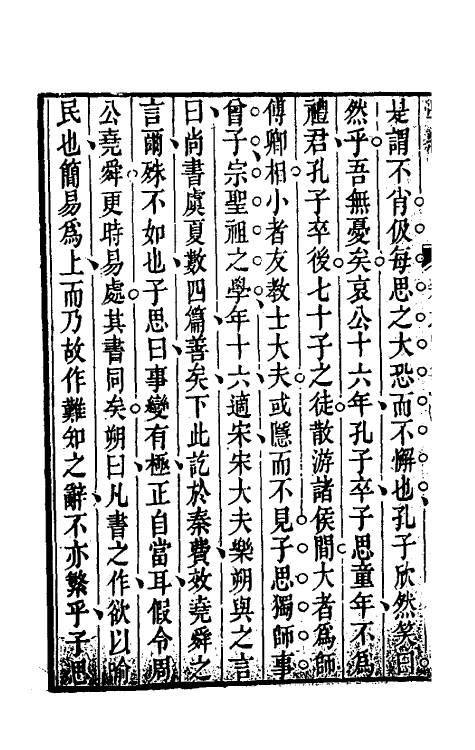 是謂不肖伋每思之大恐而不懈也孔子欣然笑曰
然乎吾無憂矣哀公十六年孔子卒子思童年不為
禮君孔子卒後七十子之徒散游諸侯間大者為師
傅卿相小者友教士大夫或隱而不見子思獨師事
曾子宗聖祖之學年十六適宋宋大夫樂朔與之言
曰尚書虞夏數四篇善矣下此訖於秦費效堯舜之
言爾殊不如也子思曰事變有極正自當耳假令周
公堯舜更時易處其書同矣朔曰凡書之作欲以喻
民也簡易為上而乃故作難知之辭不亦繁乎子思